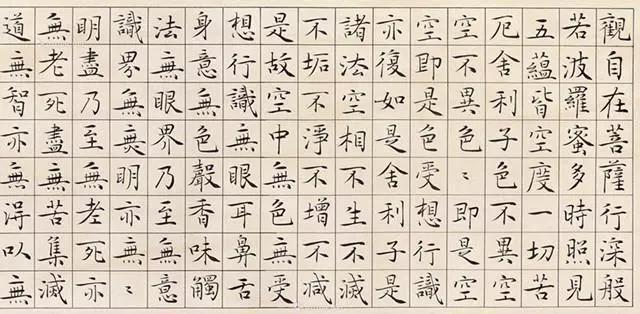 觀自在菩薩行深般
若波羅蜜多時照見
五蘊皆空度一切苦
厄舍利子色不異空
空不異色〻即是空
空即是色受想行識
亦復如是舍利子是
諸法空相不生不滅
不垢不淨不增不减
是故空中無色無受
想行識無眼耳鼻舌
身意無色聲香味觸
法無眼界乃至無意
識界無無明亦無〻
明盡乃至無老死亦
無老死盡無苦集滅
道無智亦無得以無